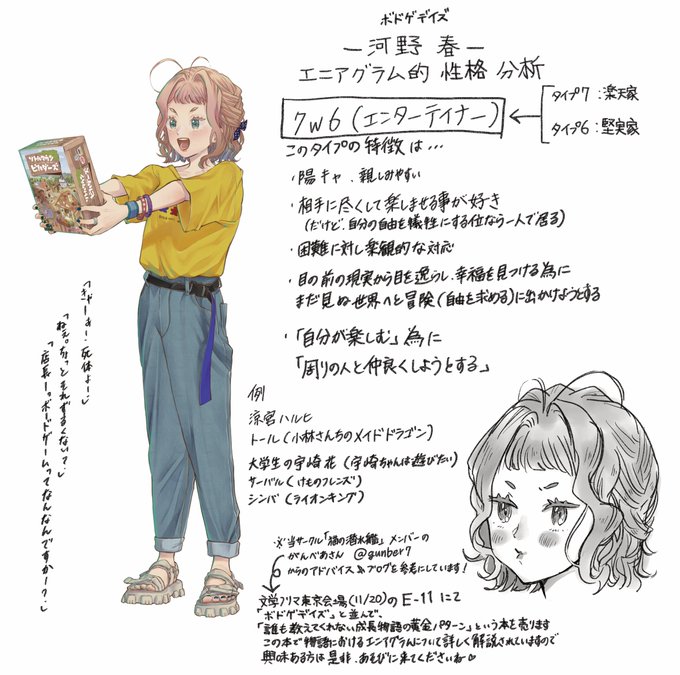 ボドゲデイズ
ー河野 春ー
エニアグラム的 性格 分析
7w6(エンターテイナー)
タイプ7:楽天家
タイプ6:堅実家
このタイプの特徴は…
・陽キャ、親しみやすい
・相手に尽くして楽しませる事が好き
(だけど、自分の自由を犠牲にする位なら一人で居る)
・困難に対し楽観的な対応
・目の前の現実から目を逸らし、幸福を見つける為に
まだ見ぬ世界へと冒険(自由を求める)に出かけようとする
・「自分が楽しむ」為に
「周りの人と仲良くしようとする」
例
涼宮ハルヒ
トール(小林さんちのメイドドラゴン)
大学生の宇崎花(宇崎ちゃんは遊びたい)
サーバル(けものフレンズ)
シンバ(ライオンキング)
「きゃーあー、死体よー」
「ねぇ。ちょっとそれずるくない?」
「店長ーっ。ボードゲームってなんなんですかー?」
※当サークル「猫の潜水艦」メンバーの
がんべあさん @gunber7
からのアドバイス&ブログを参考にしています!
文学フリマ東京会場(11/20)の E-11 にて
「ボドゲデイズ」と並んで、
「誰も教えてくれない成長物語の黄金パターン」という本を売ります
この本で物語におけるエニアグラムについて詳しく解説されていますので
興味ある方は是非、あそびに来てくださいね